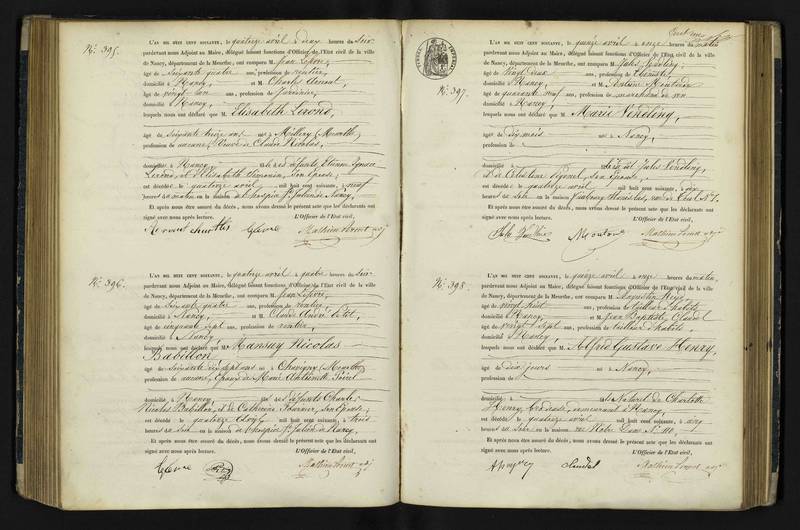 N.° 395.
L'AN MIL HUIT CENT SOIXANTE, le quatorze avril à deux heures du soir
pardevant nous Adjoint au Maire, délégué faisant fonctions d'Officier de l'Etat civil de la ville
de Nancy, département de la Meurthe, ont comparu M. Jean Lefèvre,
âgé de Soixante quatre ans, profession de rentier,
domicilié à Nancy et M. Charles
âgé de vingt ans, profession de Jardinier,
domicilié à Nancy,
lesquels nous ont déclaré que M. Elisabeth Lerond,
âgé de Soixante treize ans né à Millery (Meurthe)
profession de aucune, Veuve de Claude Nicolas,
domiciliée à Nancy, défunts Etienne
Lerond, et d'Elisabeth Simonin, Son Epouse,
est décédée le quatorze avril mil huit cent soixante, à neuf
heures du matin en la maison de l'hospice St. Julien de Nancy,
Et après nous être assuré du décès, nous avons dressé le présent acte que les déclarants ont
signé avec nous après lecture. L'Officier de l'Etat civil,
Lefevre Mathieu adj
N.° 396.
L'AN MIL HUIT CENT SOIXANTE, le quatorze avril à quatre heures du soir
pardevant nous Adjoint au Maire, délégué faisant fonctions d'Officier de l'Etat civil de la ville
de Nancy, département de la Meurthe, ont comparu M. Jean Lefèvre,
âgé de Soixante quatre ans, profession de rentier,
domicilié à Nancy, et M. Claude André
âgé de cinquante sept ans, profession de rentier,
domicilié à Nancy,
lesquels nous ont déclaré que M. Mansuy Nicolas
Babillon,
âgé de Soixante dix sept ans né à Chavigny (Meurthe)
profession de aucune, Epoux de Marie Antoinette
domicilié à Nancy, défunts Charles
Nicolas Babillon, et de Catherine Fournier, Son Epouse,
est décédé le quatorze avril mil huit cent soixante, à trois
heures du soir en la maison de l'hospice St. Julien de Nancy,
Et après nous être assuré du décès, nous avons dressé le présent acte que les déclarants ont
signé avec nous après lecture. L'Officier de l'Etat civil,
Lefevre Mathieu adj
N.° 397.
L'AN MIL HUIT CENT SOIXANTE, le quinze avril à onze heures du matin
pardevant nous Adjoint au Maire, délégué faisant fonctions d'Officier de l'Etat civil de la ville
de Nancy, département de la Meurthe, ont comparu M. Jules Vendling,
âgé de Vingt deux ans, profession de
domicilié à Nancy, et M. Antoine
âgé de quarante neuf ans, profession de marchand de vin
domicilié à Nancy,
lesquels nous ont déclaré que M. Marie Vendling,
âgé de dix mois né à Nancy,
profession de
domicilié à fille de Jules Vendling,
et de Célestine Son Epouse,
est décédée le quatorze avril mil huit cent soixante, à dix
heures du Soir en la maison
Et après nous être assuré du décès, nous avons dressé le présent acte que les déclarants ont
signé avec nous après lecture. L'Officier de l'Etat civil,
Mathieu adj
N.° 398.
L'AN MIL HUIT CENT SOIXANTE, le quinze avril à onze heures du matin,
pardevant nous Adjoint au Maire, délégué faisant fonctions d'Officier de l'Etat civil de la ville
de Nancy, département de la Meurthe, ont comparu M. Augustin
âgé de vingt huit ans, profession de tailleur d'habits,
domicilié à Nancy, et M. Jean Baptiste Claudel
âgé de vingt Sept ans, profession de tailleur d'habits,
domicilié à Nancy,
lesquels nous ont déclaré que M. Alfred Gustave Henry,
âgé de dix jours né à Nancy,
profession de
domicilié à fils Naturel de Charlotte
Henry, brodeuse, demeurant à Nancy,
est décédé le quatorze avril mil huit cent soixante, à cinq
heures du Soir en la maison rue Notre Dame
Et après nous être assuré du décès, nous avons dressé le présent acte que les déclarants ont
signé avec nous après lecture. L'Officier de l'Etat civil,
Claudel Mathieu adj